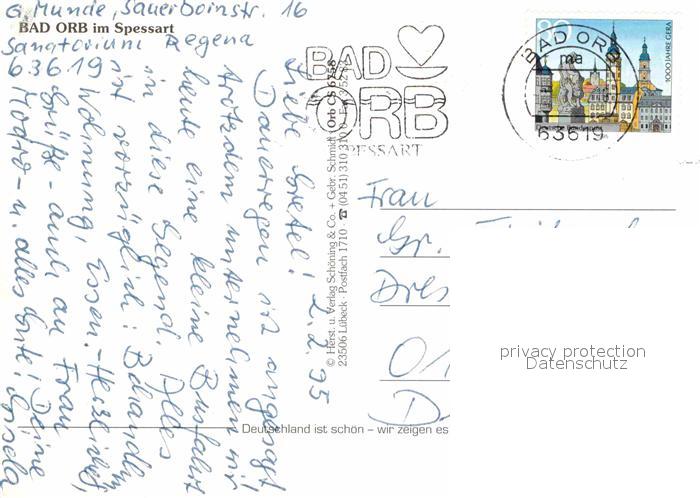 G. Munde, Sauerbornstr. 16
BAD ORB im Spessart
Sanatorium Regena
63619
Liebe Gretel! 2.2.95
Dauerregen ist angesagt
trotzdem unternehmen wir
heute eine kleine Busfahrt
in diese Gegend. Alles
ist vorzüglich: Behandlg
Wohnung, Essen. - Herzlichst
Grüße - auch an Frau
u. alles Gute! Deine Gisela
© Herst. u. Verlag Schöning & Co. + Gebr. Schmidt
23506 Lübeck · Postfach 1710 · ☎ (04 51) 310 310
BAD
ORB
SPESSART
80
1000 JAHRE GERA
BAD ORB
ma
63619
Frau
Gr.
Dres
D
Deutschland ist schön – wir zeigen es
privacy protection
Datenschutz